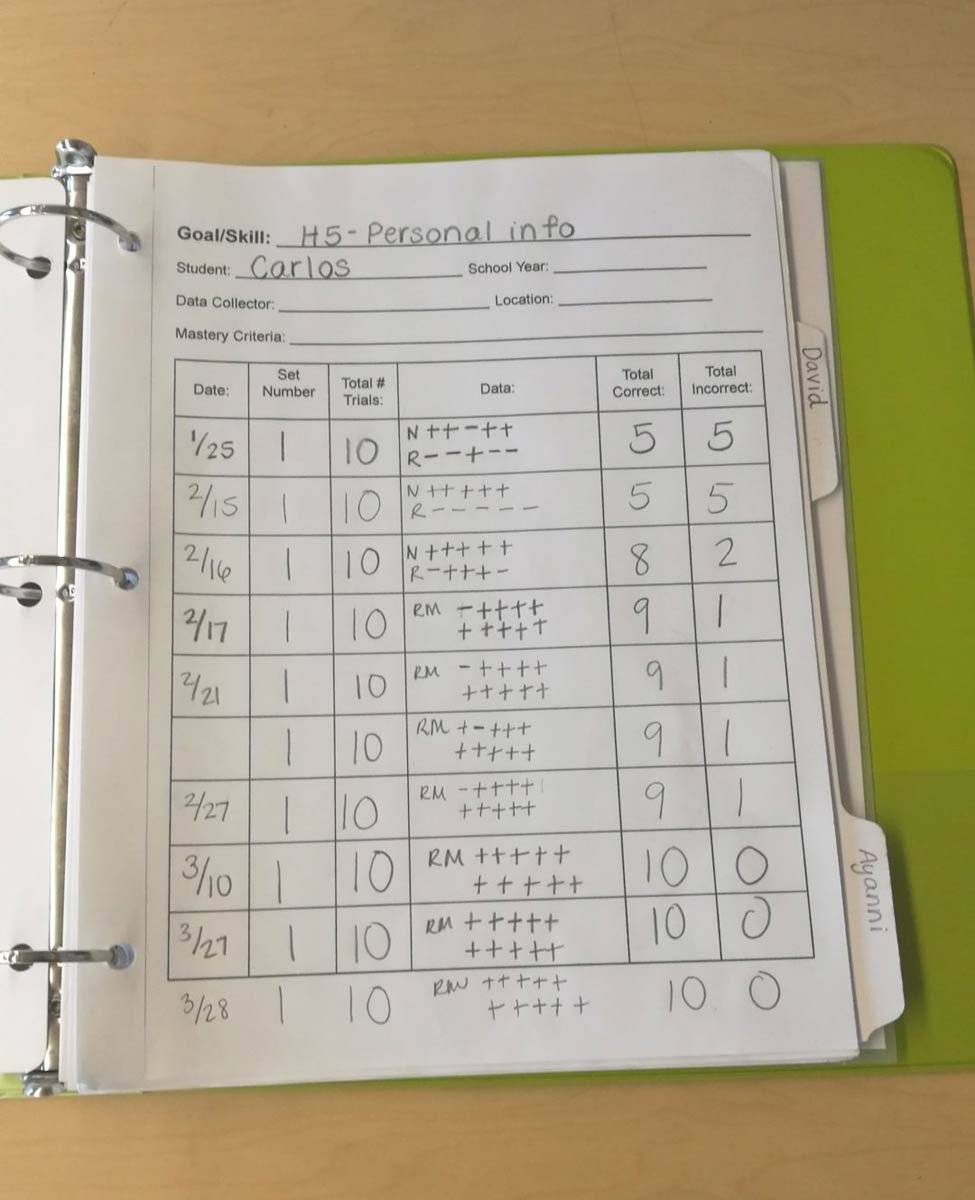 Goal/Skill: H5-Personal info
Student: Carlos School Year:
Data Collector: Location:
Mastery Criteria:
Date: Set Number Total # Trials: Data: Total Correct: Total Incorrect:
1/25 1 10 N ++-++ 5 5
R--+--
2/15 1 10 N +++++ 5 5
R-----
2/16 1 10 N +++++ 8 2
R-+++-
2/17 1 10 RM -++++ 9 1
+++++
2/21 1 10 RM -++++ 9 1
+++++
1 10 RM +-+++ 9 1
+++++
2/27 1 10 RM -++++ 9 1
+++++
3/10 1 10 RM +++++ 10 0
+++++
3/27 1 10 RM +++++ 10 0
+++++
3/28 1 10 RM +++++ 10 0
+++++
David
Ayanni